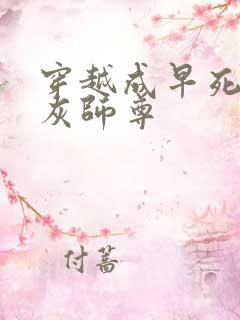 穿越成早死
灰师尊
付蔷